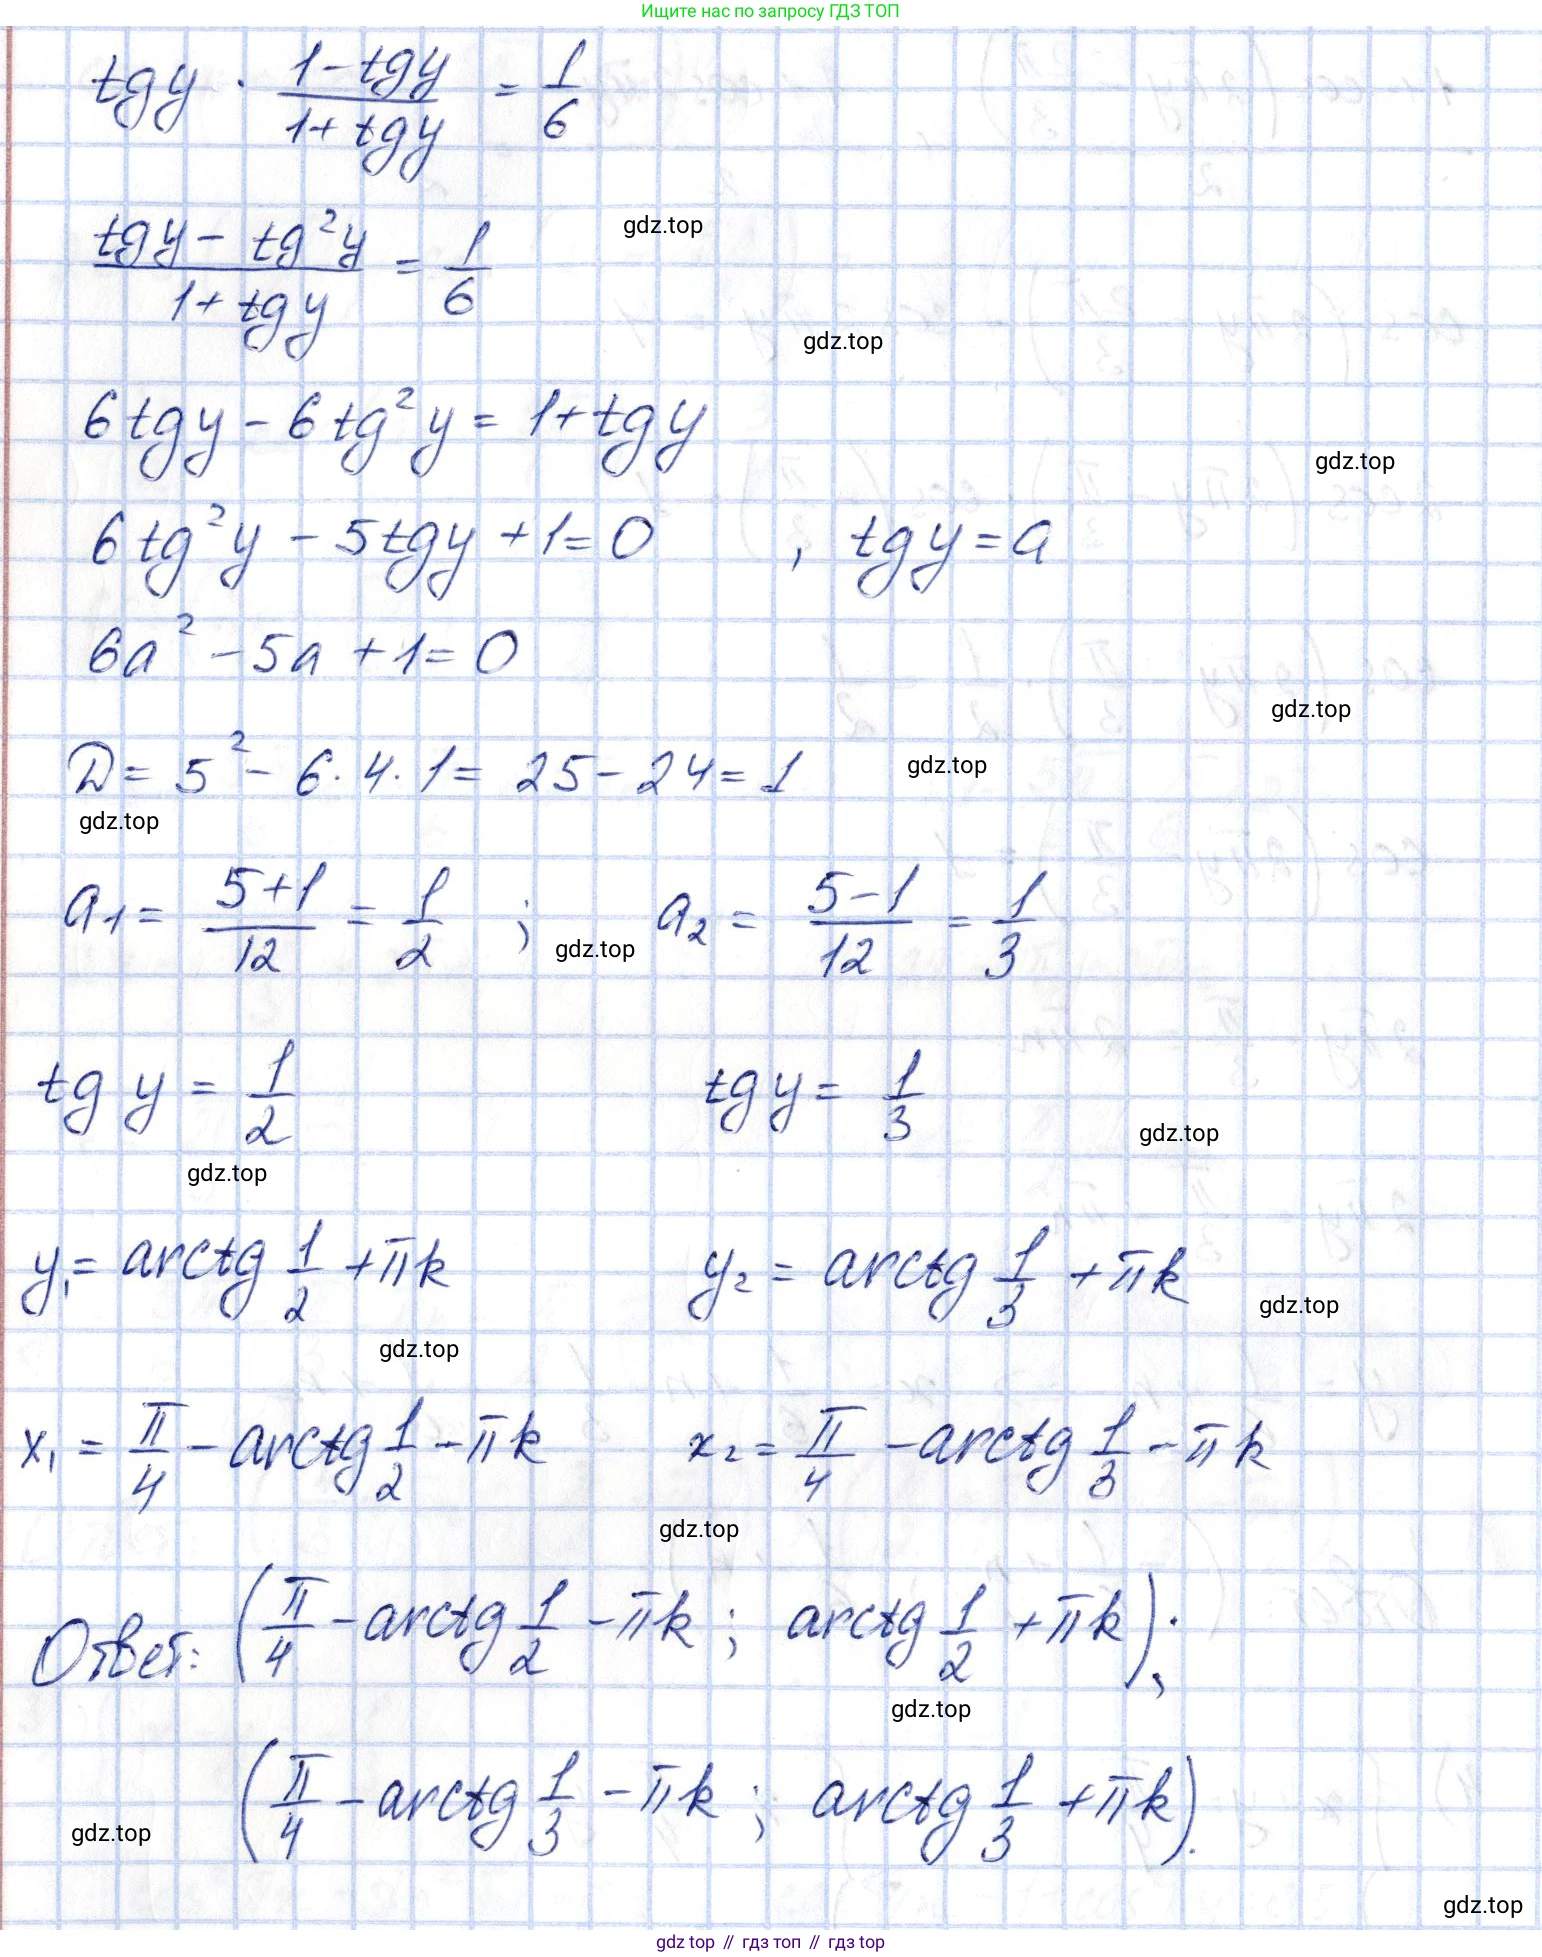 Ищите нас по запросу ГДЗ ТОП
tgy · (1-tgy)/(1+tgy) = 1/6
(tgy - tg²y)/(1+tgy) = 1/6
gdz.top
gdz.top
6tgy - 6tg²y = 1+tgy
gdz.top
6tg²y - 5tgy + 1 = 0 , tgy = a
6a² - 5a + 1 = 0
gdz.top
D = 5² - 6·4·1 = 25 - 24 = 1
gdz.top
gdz.top
a₁ = (5+1)/12 = 1/2 ; a₂ = (5-1)/12 = 1/3
gdz.top
tg y = 1/2 tgy = 1/3
gdz.top
gdz.top
y₁ = arctg 1/2 + πk y₂ = arctg 1/3 + πk
gdz.top
gdz.top
x₁ = π/4 - arctg 1/2 - πk x₂ = π/4 - arctg 1/3 - πk
gdz.top
Ответ: (π/4 - arctg 1/2 - πk ; arctg 1/2 + πk);
gdz.top
(π/4 - arctg 1/3 - πk ; arctg 1/3 + πk).
gdz.top
gdz.top
gdz top // гдз топ // гдз top